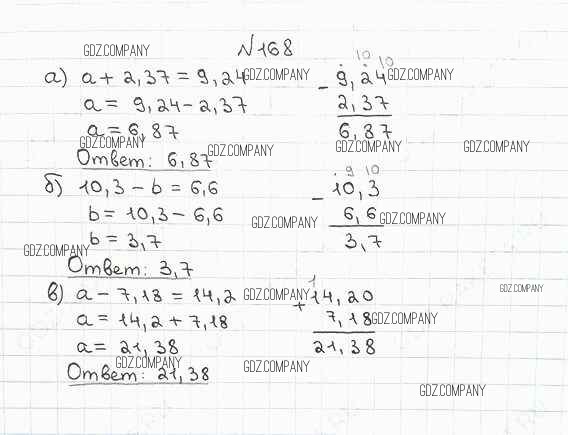 №168
GDZ.COMPANY
а) a + 2,37 = 9,24
GDZ.COMPANY
a = 9,24 - 2,37
a = 6,87
GDZ.COMPANY
Ответ: 6,87
GDZ.COMPANY
10 10
- 9,24
GDZ.COMPANY
2,37
6,87
GDZ.COMPANY
GDZ.COMPANY
б) 10,3 - b = 6,6
b = 10,3 - 6,6
b = 3,7
GDZ.COMPANY
Ответ: 3,7
9 10
- 10,3
6,6
GDZ.COMPANY
GDZ.COMPANY
3,7
в) a - 7,18 = 14,2
GDZ.COMPANY
a = 14,2 + 7,18
a = 21,38
GDZ.COMPANY
Ответ: 21,38
1
+ 14,20
7,18
GDZ.COMPANY
21,38
GDZ.COMPANY
GDZ.COMPANY
GDZ.COMPANY